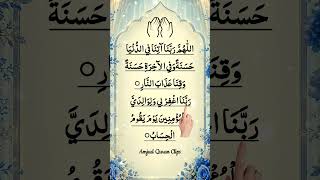 اَللّٰهُمَّ رَبَّنَا آتِنَا فِي الدُّنْيَا
حَسَنَةً وَّفِي الْآخِرَةِ حَسَنَةً
وَّقِنَا عَذَابَ النَّارِ ○
رَبَّنَا اغْفِرْ لِي وَلِوَالِدَيَّ
وَلِلْمُؤْمِنِينَ يَوْمَ يَقُومُ
الْحِسَابُ ○
Amjad Quran Clips